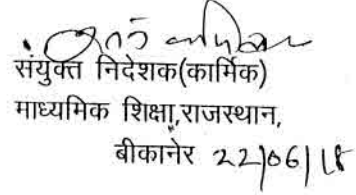 संयुक्त निदेशक(कार्मिक)
माध्यमिक शिक्षा,राजस्थान,
बीकानेर 22/06/18